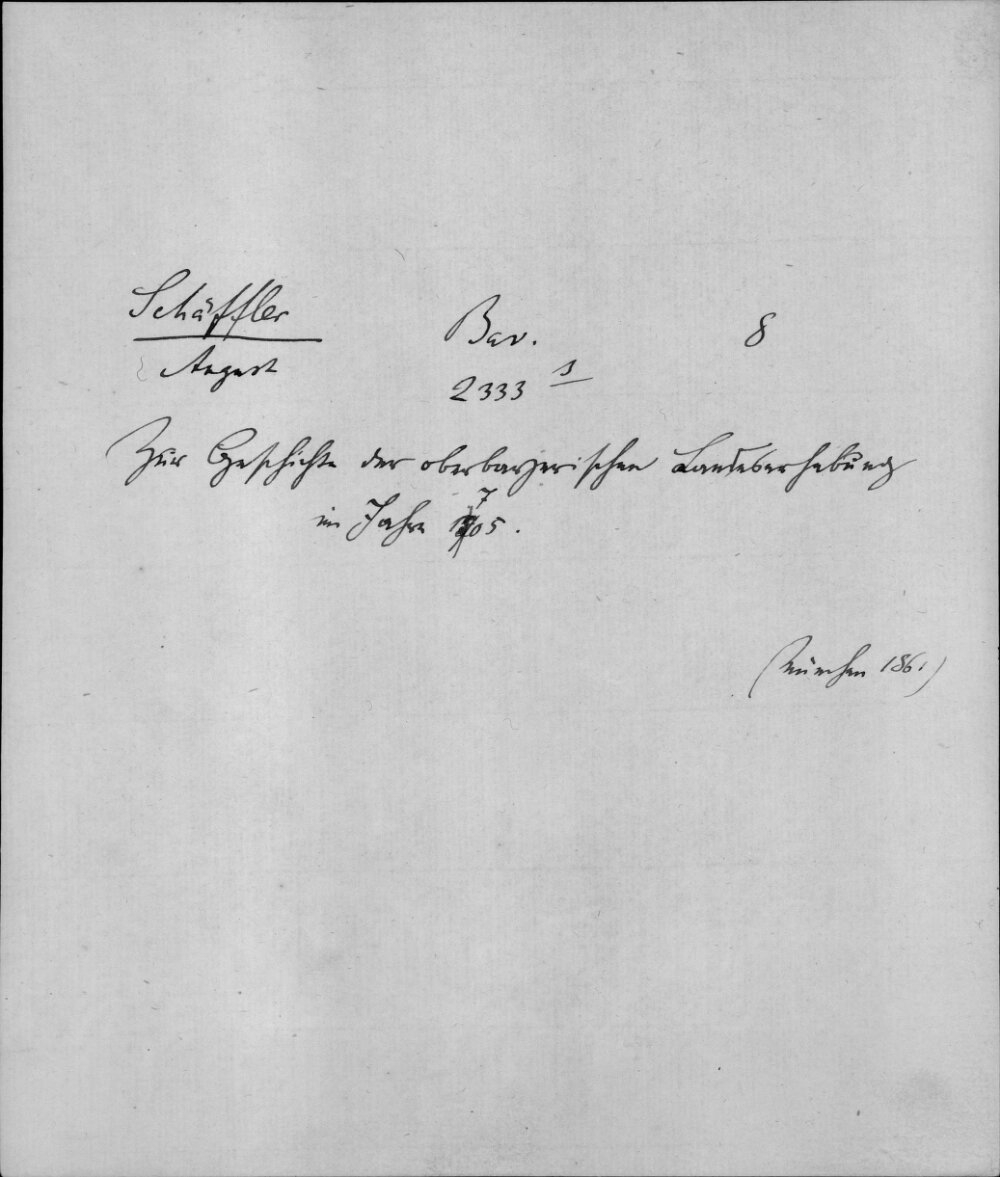 Schäffler Bav. 8
August 2333 s
Zur Geschichte der oberbayerischen Landeserhebung
im Jahre 1705.
(München 1861)